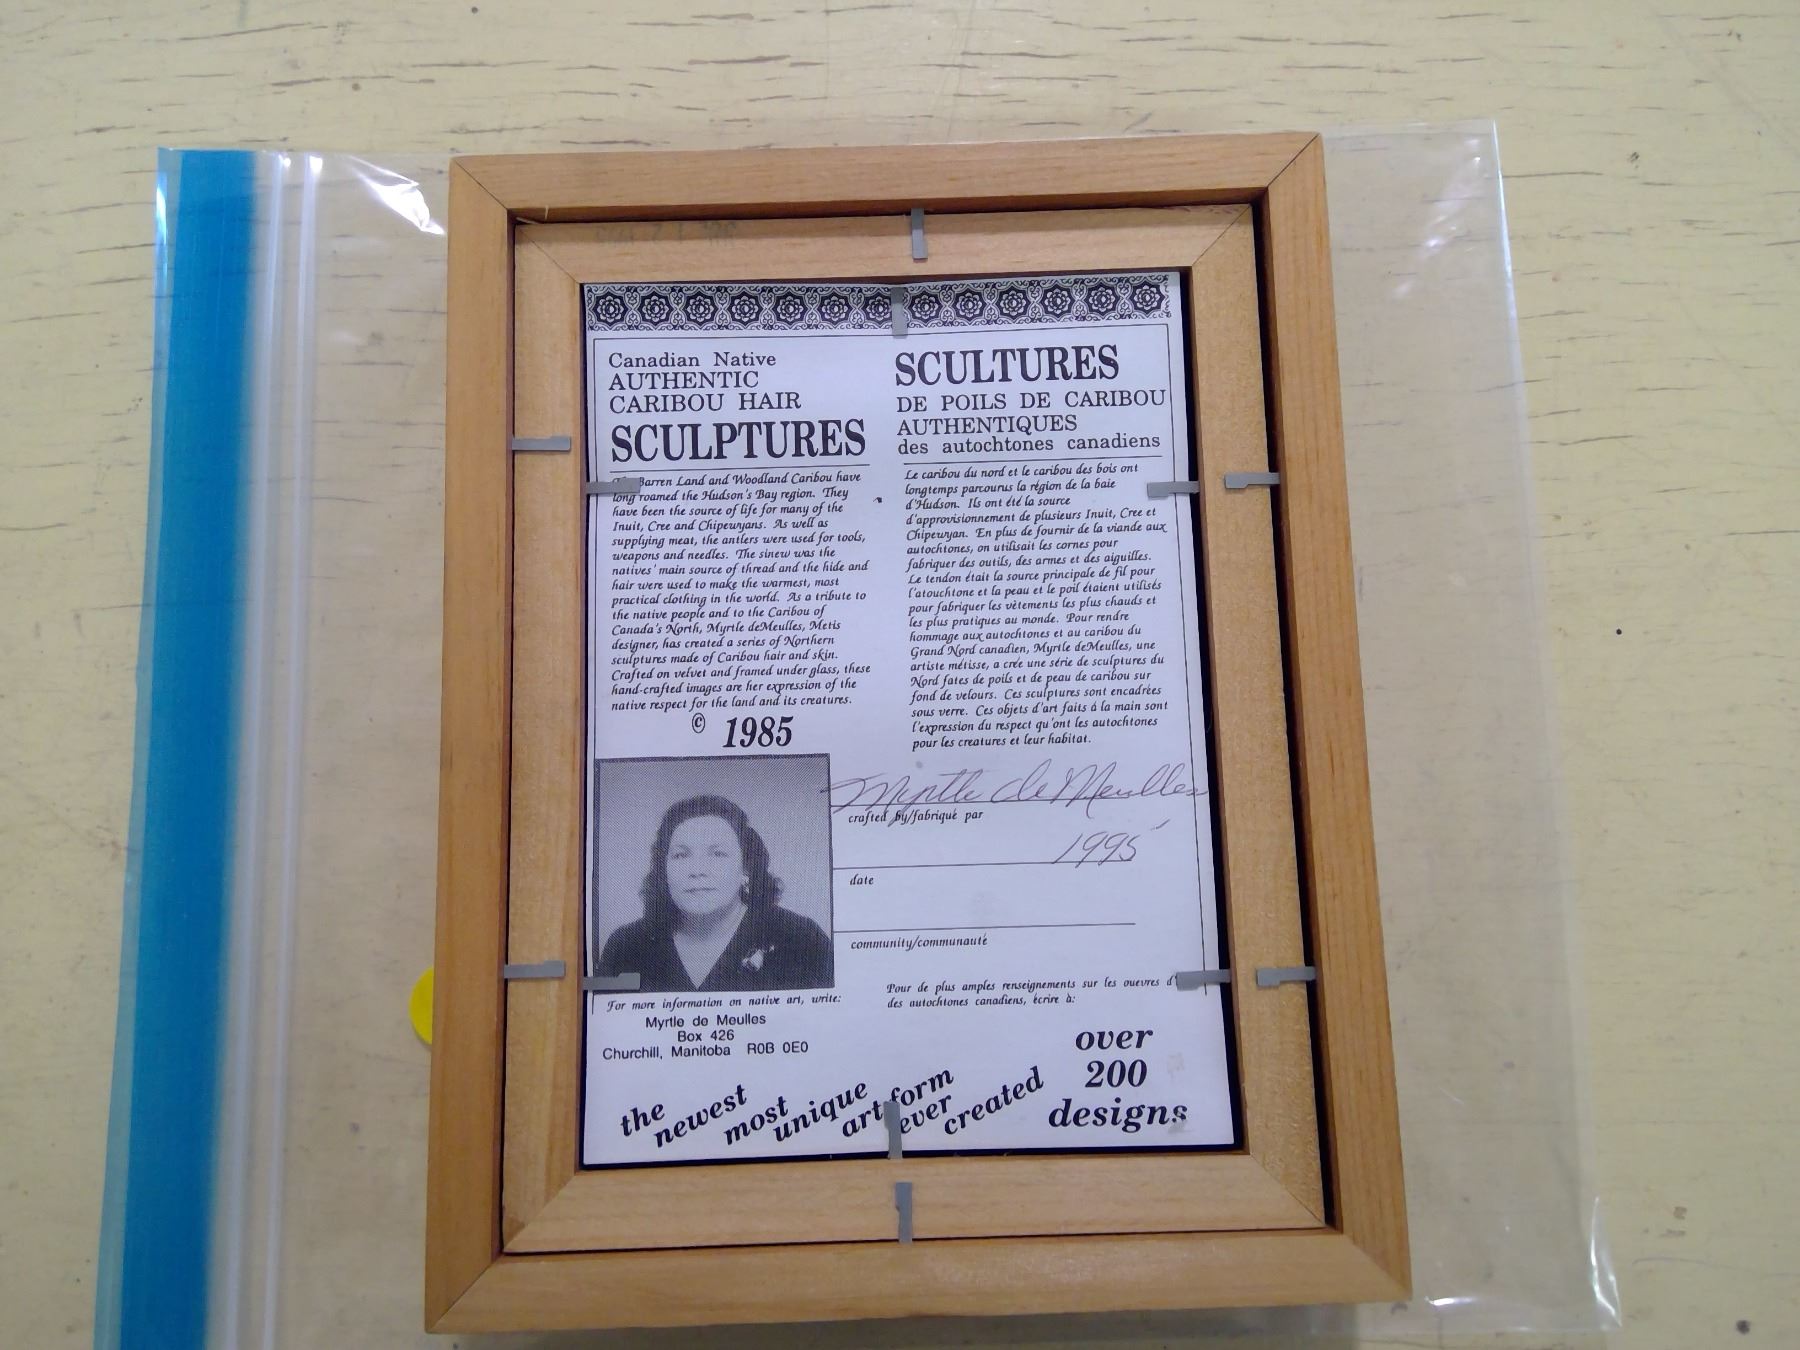 Canadian Native
AUTHENTIC
CARIBOU HAIR
SCULPTURES
Barren Land and Woodland Caribou have
long roamed the Hudson's Bay region. They
have been the source of life for many of the
Inuit, Cree and Chipewyans. As well as
supplying meat, the antlers were used for tools,
weapons and needles. The sinew was the
natives' main source of thread and the hide and
hair were used to make the warmest, most
practical clothing in the world. As a tribute to
the native people and to the Caribou of
Canada's North, Myrtle deMeulles, Metis
designer, has created a series of Northern
sculptures made of Caribou hair and skin.
Crafted on velvet and framed under glass, these
hand-crafted images are her expression of the
native respect for the land and its creatures.
© 1985
SCULTURES
DE POILS DE CARIBOU
AUTHENTIQUES
des autochtones canadiens
Le caribou du nord et le caribou des bois ont
longtemps parcourus la région de la baie
d'Hudson. Ils ont été la source
d'approvisionnement de plusieurs Inuit, Cree et
Chipewyan. En plus de fournir de la viande aux
autochtones, on utilisait les cornes pour
fabriquer des outils, des armes et des aiguilles.
Le tendon était la source principale de fil pour
l'atouchtone et la peau et le poil étaient utilisés
pour fabriquer les vètements les plus chauds et
les plus pratiques au monde. Pour rendre
hommage aux autochtones et au caribou du
Grand Nord canadien, Myrtle deMeulles, une
artiste métisse, a crée une série de sculptures du
Nord fates de poils et de peau de caribou sur
fond de velours. Ces sculptures sont encadrées
sous verre. Ces objets d'art faits à la main sont
l'expression du respect qu'ont les autochtones
pour les creatures et leur habitat.
Myrtle de Meulles
crafted by/fabriqué par
1995
date
community/communauté
For more information on native art, write:
Myrtle de Meulles
Box 426
Churchill, Manitoba R0B 0E0
Pour de plus amples renseignements sur les ouevres d'
des autochtones canadiens, écrire à:
the
newest
most
unique
art form
ever
created
over
200
designs